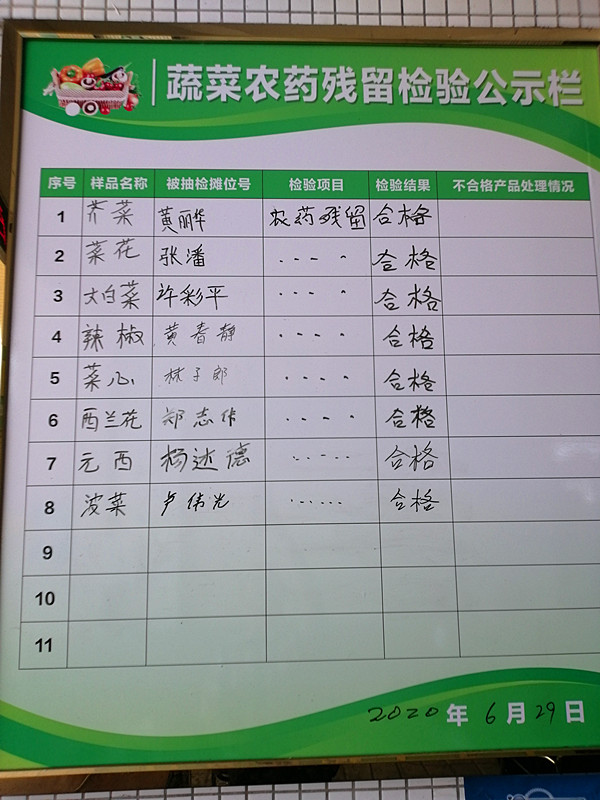 蔬菜农药残留检验公示栏
序号 样品名称 被抽检摊位号 检验项目 检验结果 不合格产品处理情况
1 芥菜 黄丽华 农药残留 合格
2 菜花 张潘 ---- 合格
3 大白菜 许彩平 ---- 合格
4 辣椒 黄春静 ---- 合格
5 菜心 林子郎 ---- 合格
6 西兰花 郑志伟 ---- 合格
7 元西 杨述德 ----- 合格
8 波菜 卢伟光 ------ 合格
9
10
11
2020年6月29日